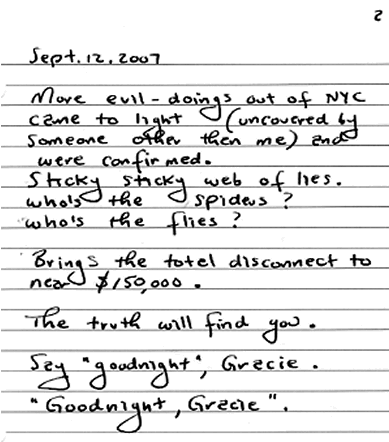 2
Sept. 12, 2007
More evil-doings out of NYC
came to light (uncovered by
someone other then me) and
were confirmed.
Sticky sticky web of lies.
who's the spiders?
who's the flies?
Brings the total disconnect to
near $150,000.
The truth will find you.
Say "goodnight", Gracie.
"Goodnight, Gracie".